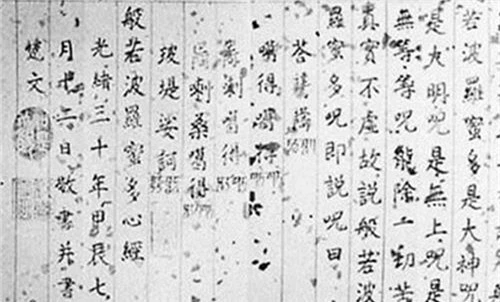 若波羅蜜多是大神咒
是大明咒是無上咒是
無等等咒能除一切苦
真實不虛故說般若波
羅蜜多咒即說咒曰
噶得噶得
剌噶得
剌桑噶得
堤娑訶
般若波羅蜜多心經
光緒三十年甲辰七
月廿二日敬書并書
文